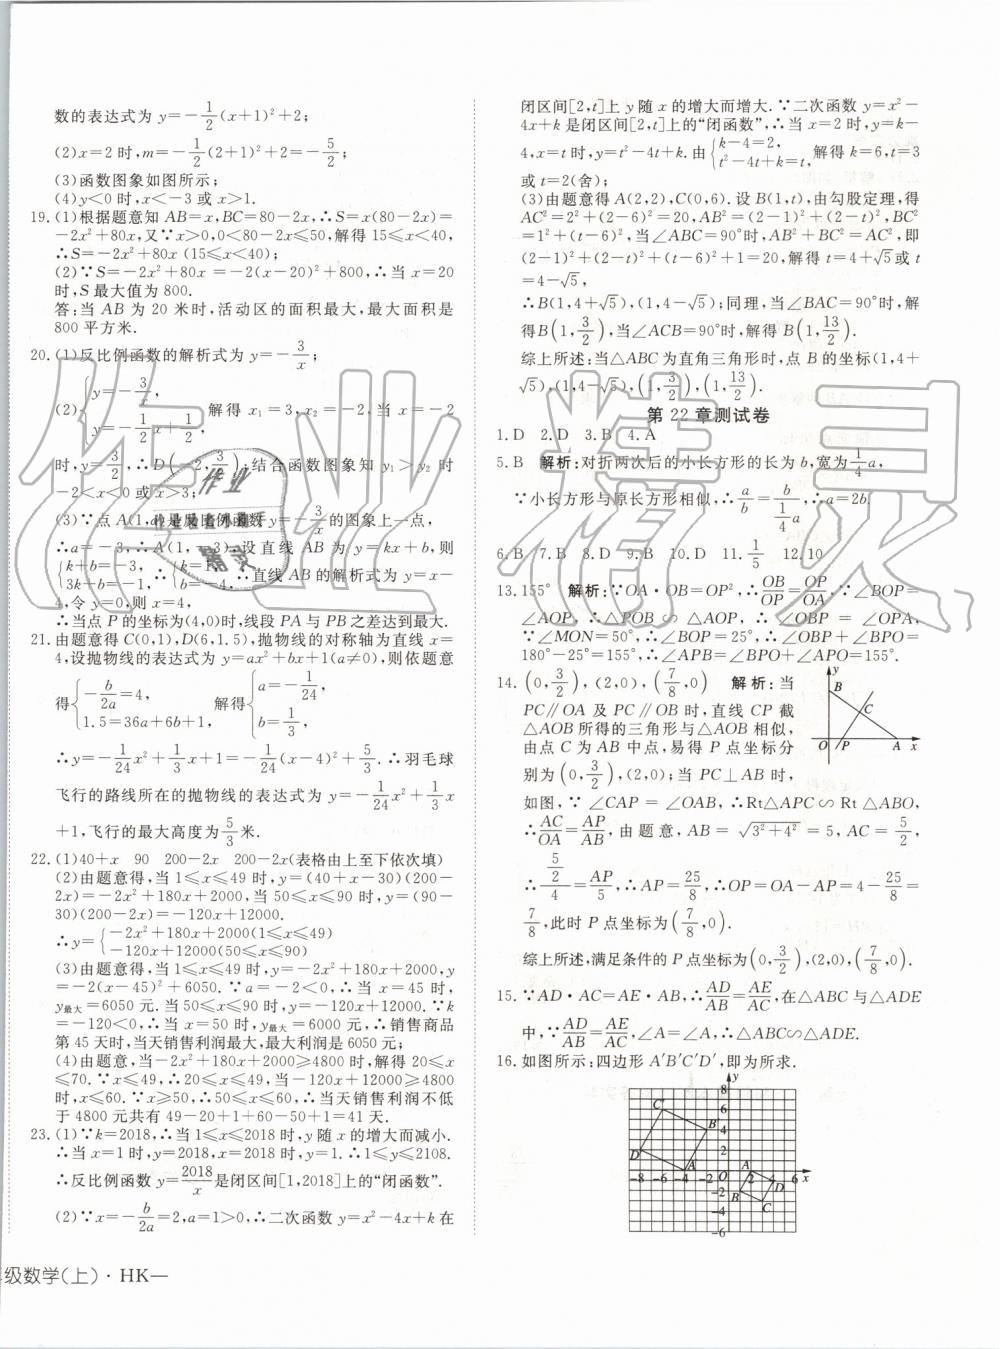 数的表达式为 y=-1/2(x+1)²+2;
(2)x=2 时,m=-1/2(2+1)²+2=-5/2;
(3)函数图象如图所示;
(4)y<0 时,x<-3 或 x>1.
19.(1)根据题意知 AB=x,BC=80-2x,∴S=x(80-2x)=
-2x²+80x,又∵x>0,0<80-2x≤50,解得 15≤x<40,
∴S=-2x²+80x (15≤x<40);
(2)∵S=-2x²+80x =-2(x-20)²+800,∴当 x=20
时,S 最大值为 800.
答:当 AB 为 20 米时,活动区的面积最大,最大面积是
800 平方米.
20.(1)反比例函数的解析式为 y=-3/x;
(2){y=-3/x, y=-1/2x+1/2, 解得 x₁=3,x₂=-2,当 x=-2
时,y=3/2,∴D(-2,3/2);结合函数图象知 y₁>y₂ 时
-2<x<0 或 x>3;
(3)∵点 A(1,a)是反比例函数 y=-3/x的图象上一点,
∴a=-3,∴A(1,-3),设直线 AB 为 y=kx+b,则
{k+b=-3, 3k+b=-1, ∴{k=1, b=-4, ∴直线 AB 的解析式为 y=x-
4,令 y=0,则 x=4,
∴当点 P 的坐标为(4,0)时,线段 PA 与 PB 之差达到最大.
21.由题意得 C(0,1),D(6,1.5),抛物线的对称轴为直线 x=
4,设抛物线的表达式为 y=ax²+bx+1(a≠0),则依题意
得{-b/2a=4, 1.5=36a+6b+1, 解得{a=-1/24, b=1/3,
∴y=-1/24x²+1/3x+1=-1/24(x-4)²+5/3,∴羽毛球
飞行的路线所在的抛物线的表达式为 y=-1/24x²+1/3x
+1,飞行的最大高度为5/3米.
22.(1)40+x 90 200-2x 200-2x(表格由上至下依次填)
(2)由题意得,当 1≤x≤49 时,y=(40+x-30)(200-
2x)=-2x²+180x+2000,当 50≤x≤90 时,y=(90-
30)(200-2x)=-120x+12000.
∴y={-2x²+180x+2000(1≤x≤49)
-120x+12000(50≤x≤90)
(3)由题意得,当 1≤x≤49 时,y=-2x²+180x+2000=
-2(x-45)²+6050.∵a=-2<0,∴当 x=45 时,
y最大=6050 元.当 50≤x≤90 时,y=-120x+12000.∵k
=-120<0,∴当 x=50 时,y最大=6000 元,∴销售商品
第 45 天时,当天销售利润最大,最大利润是 6050 元;
(4)由题意,当-2x²+180x+2000≥4800 时,解得 20≤x
≤70.∵x<50,∴20≤x<50.当-120x+12000≥4800
时,x≤60.∵x≥50,∴50≤x≤60,∴当天销售利润不低
于 4800 元共有 49-20+1+60-50+1=41 天.
23.(1)∵k=2018,∴当 1≤x≤2018 时,y 随 x 的增大而减小.
∴当 x=1 时,y=2018,x=2018 时,y=1.∴1≤y≤2108.
∴反比例函数 y=2018/x是闭区间[1,2018]上的“闭函数”.
(2)∵x=-b/2a=2,a=1>0,∴二次函数 y=x²-4x+k 在
级数学(上)·HK—
闭区间[2,t]上 y 随 x 的增大而增大.∵二次函数 y=x²-
4x+k 是闭区间[2,t]上的“闭函数”,∴当 x=2 时,y=k-
4,x=t 时,y=t²-4t+k.由{k-4=2, t²-4t+k=t, 解得 k=6,t=3
或 t=2(舍);
(3)由题意得 A(2,2),C(0,6).设 B(1,t),由勾股定理,得
AC²=2²+(2-6)²=20,AB²=(2-1)²+(2-t)²,BC²
=1²+(6-t)²,当∠ABC=90°时,AB²+BC²=AC²,即
(2-1)²+(2-t)²+(t-6)²+1=20,解得 t=4+√5或 t
=4-√5,
∴B(1,4+√5),(1,4-√5);同理,当∠BAC=90°时,解
得B(1,3/2),当∠ACB=90°时,解得 B(1,13/2).
综上所述:当△ABC为直角三角形时,点 B 的坐标(1,4+
√5),(1,4-√5),(1,3/2),(1,13/2).
第 22 章测试卷
1.D 2.D 3.B 4.A
5.B 解析:对折两次后的小长方形的长为 b,宽为1/4a,
∵小长方形与原长方形相似,∴a/b=b/(1/4a),∴a=2b.
6.B 7.B 8.D 9.B 10.D 11.1/5 12.10
13.155° 解析:∵OA·OB=OP²,∴OB/OP=OP/OA.∵∠BOP=
∠AOP,∴△POB∽△AOP,∴∠OBP=∠OPA,
∵∠MON=50°,∴∠BOP=25°,∴∠OBP+∠BPO=
180°-25°=155°,∴∠APB=∠BPO+∠APO=155°.
14.(0,3/2),(2,0),(7/8,0) 解析:当
PC∥OA 及 PC∥OB 时,直线 CP 截
△AOB所得的三角形与△AOB相似,
由点 C 为 AB 中点,易得 P 点坐标分
别为(0,3/2),(2,0);当 PC⊥AB 时,
如图,∵∠CAP=∠OAB,∴Rt△APC∽Rt△ABO,
∴AC/OA=AP/AB,由题意,AB=√3²+4²=5,AC=5/2,
∴(5/2)/4=AP/5,∴AP=25/8,∴OP=OA-AP=4-25/8=
7/8,此时 P 点坐标为(7/8,0).
综上所述,满足条件的 P 点坐标为(0,3/2),(2,0),(7/8,0).
y
B
C
O P A x
15.∵AD·AC=AE·AB,∴AD/AB=AE/AC,在△ABC与△ADE
中,∵AD/AB=AE/AC,∠A=∠A,∴△ABC∽△ADE.
16.如图所示:四边形 A′B′C′D′,即为所求.
作业精灵